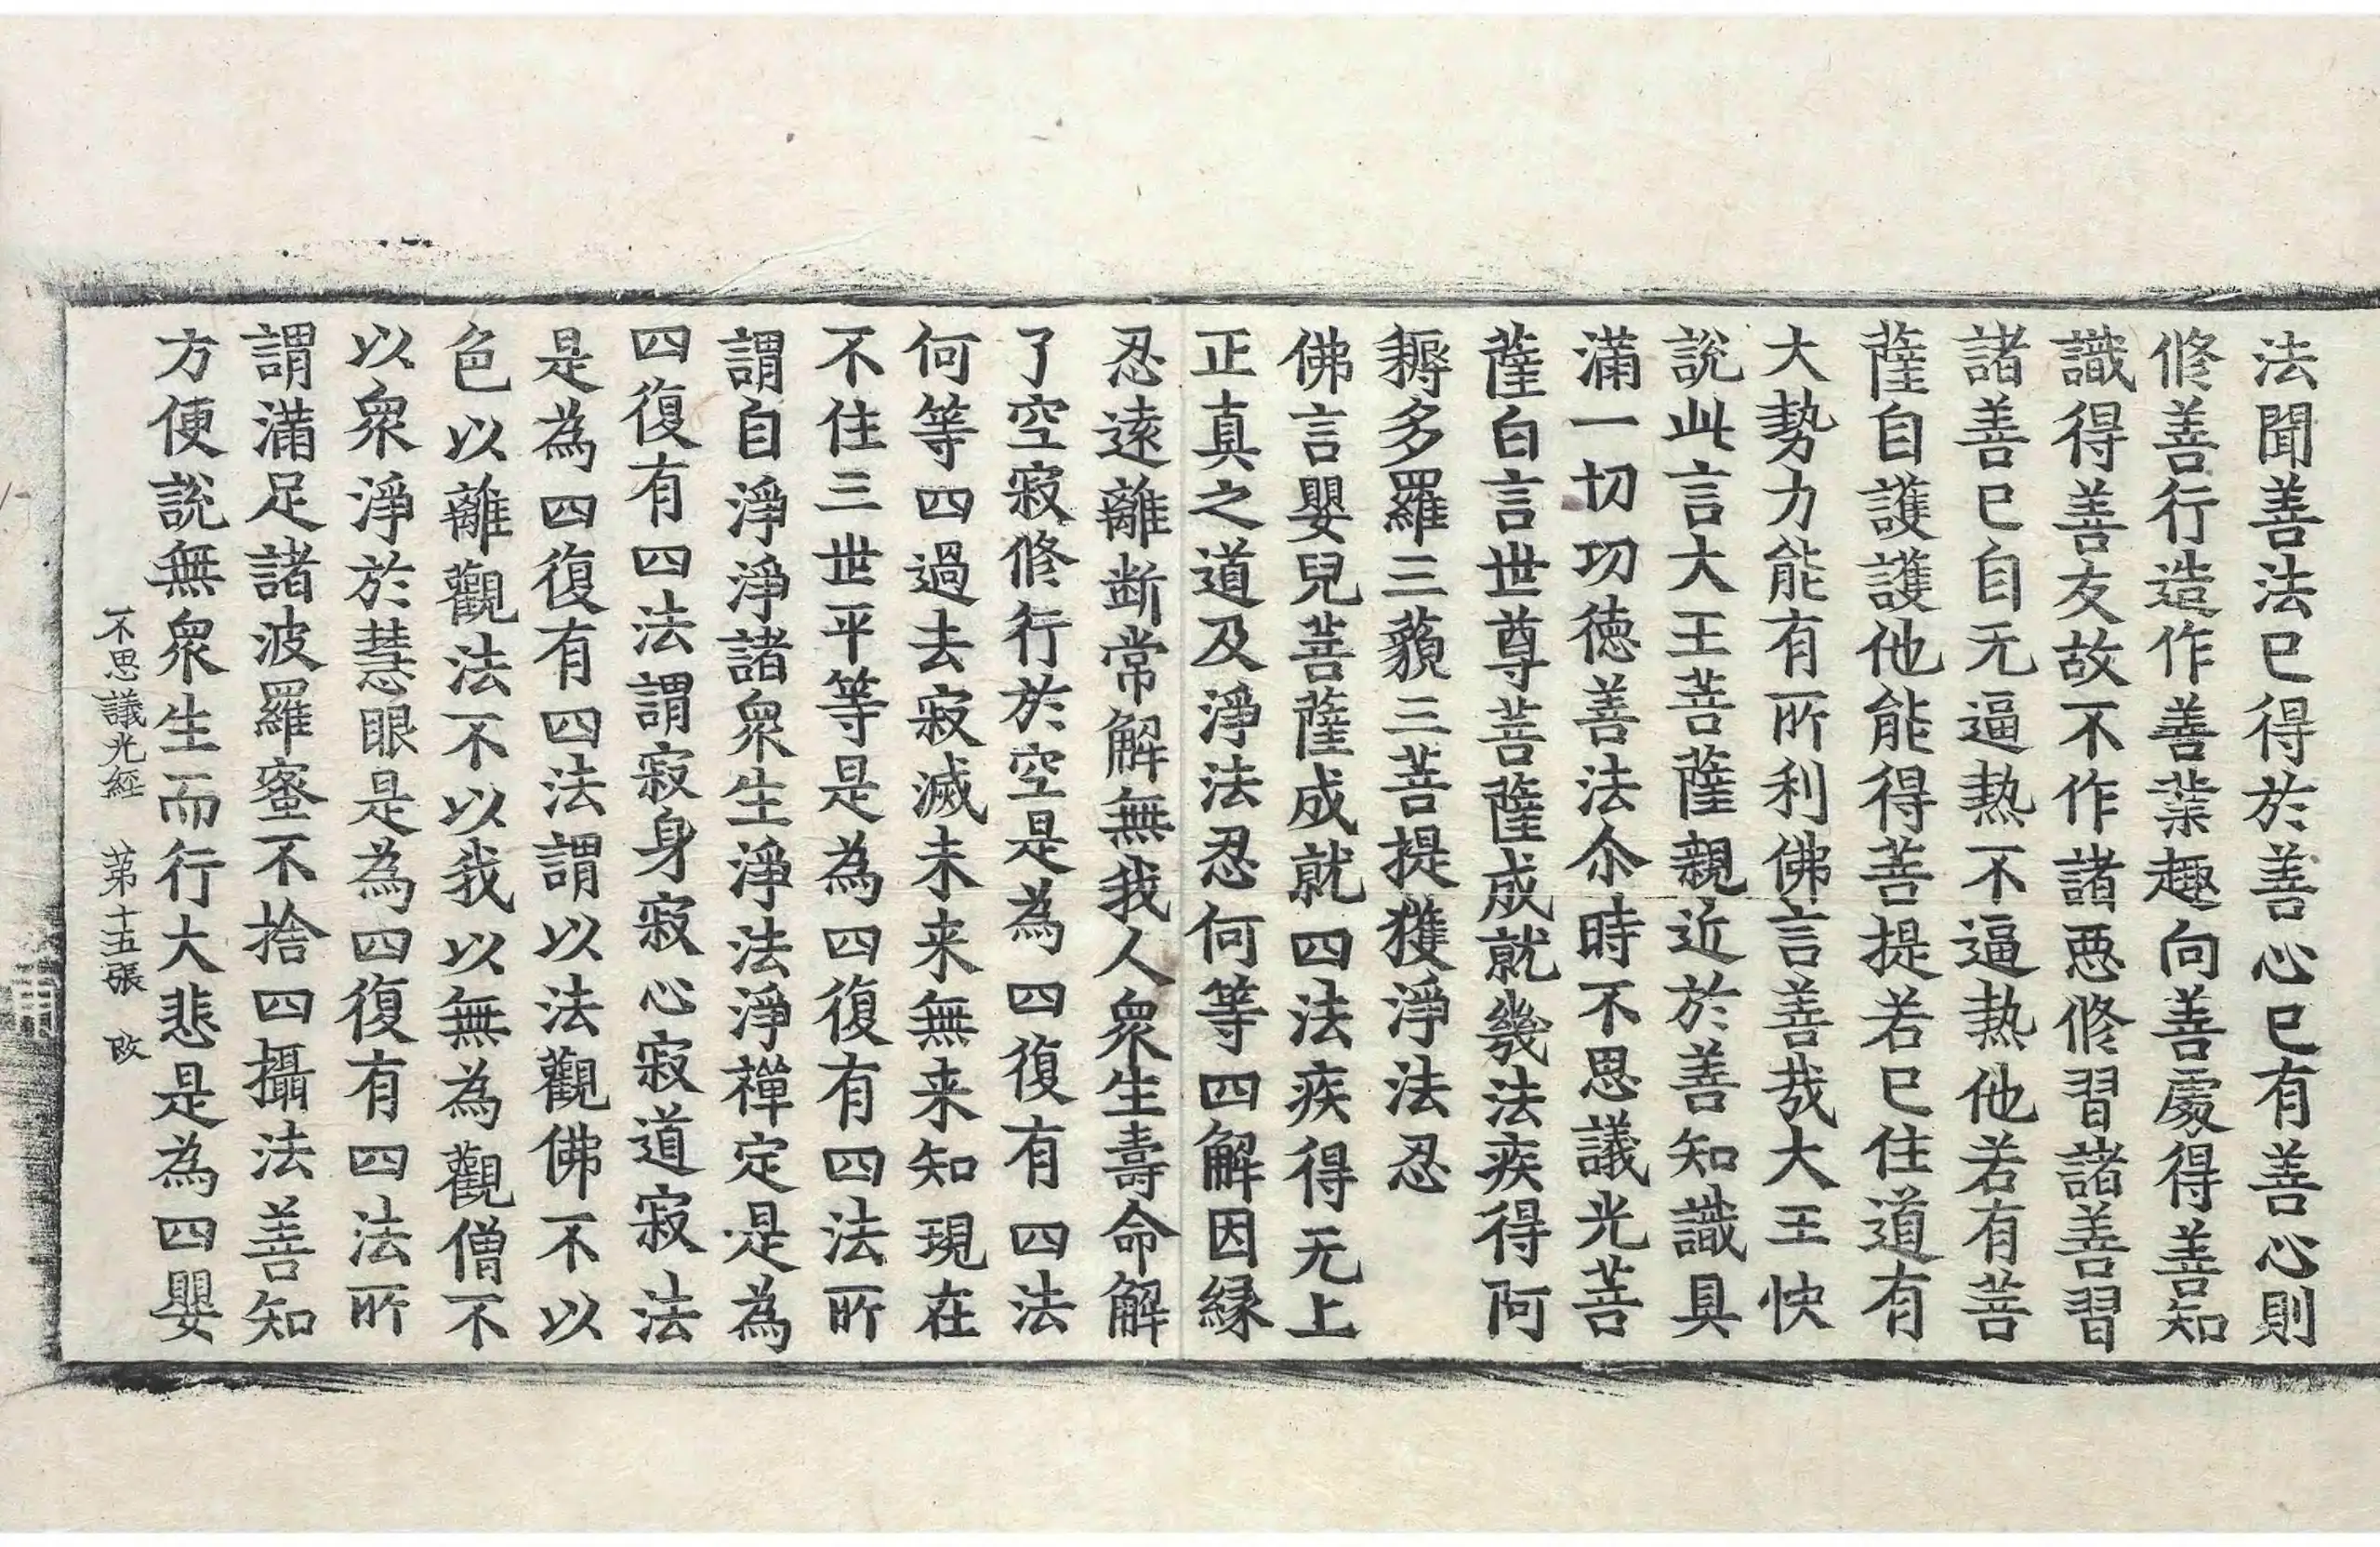 法聞善法已得於善心已有善心則
修善行造作善業趣向善處得善知
識得善友故不作諸惡修習諸善習
諸善已自无逼熱不逼熱他若有菩
薩自護護他能得菩提若已住道有
大勢力能有所利佛言善哉大王快
說此言大王菩薩親近於善知識具
滿一切功德善法尒時不思議光菩
薩白言世尊菩薩成就幾法疾得阿
耨多羅三藐三菩提獲淨法忍
佛言嬰兒菩薩成就四法疾得无上
正真之道及淨法忍何等四解因緣
忍遠離断常解無我人衆生壽命解
了空寂修行於空是為四復有四法
何等四過去寂滅未来無来知現在
不住三世平等是為四復有四法所
謂自淨淨諸衆生淨法淨禪定是為
四復有四法謂寂身寂心寂道寂法
是為四復有四法謂以法觀佛不以
色以離觀法不以我以無為觀僧不
以衆淨於慧眼是為四復有四法所
謂滿足諸波羅蜜不捨四攝法善知
方便說無衆生而行大悲是為四嬰
不思議光經　第十五張　改